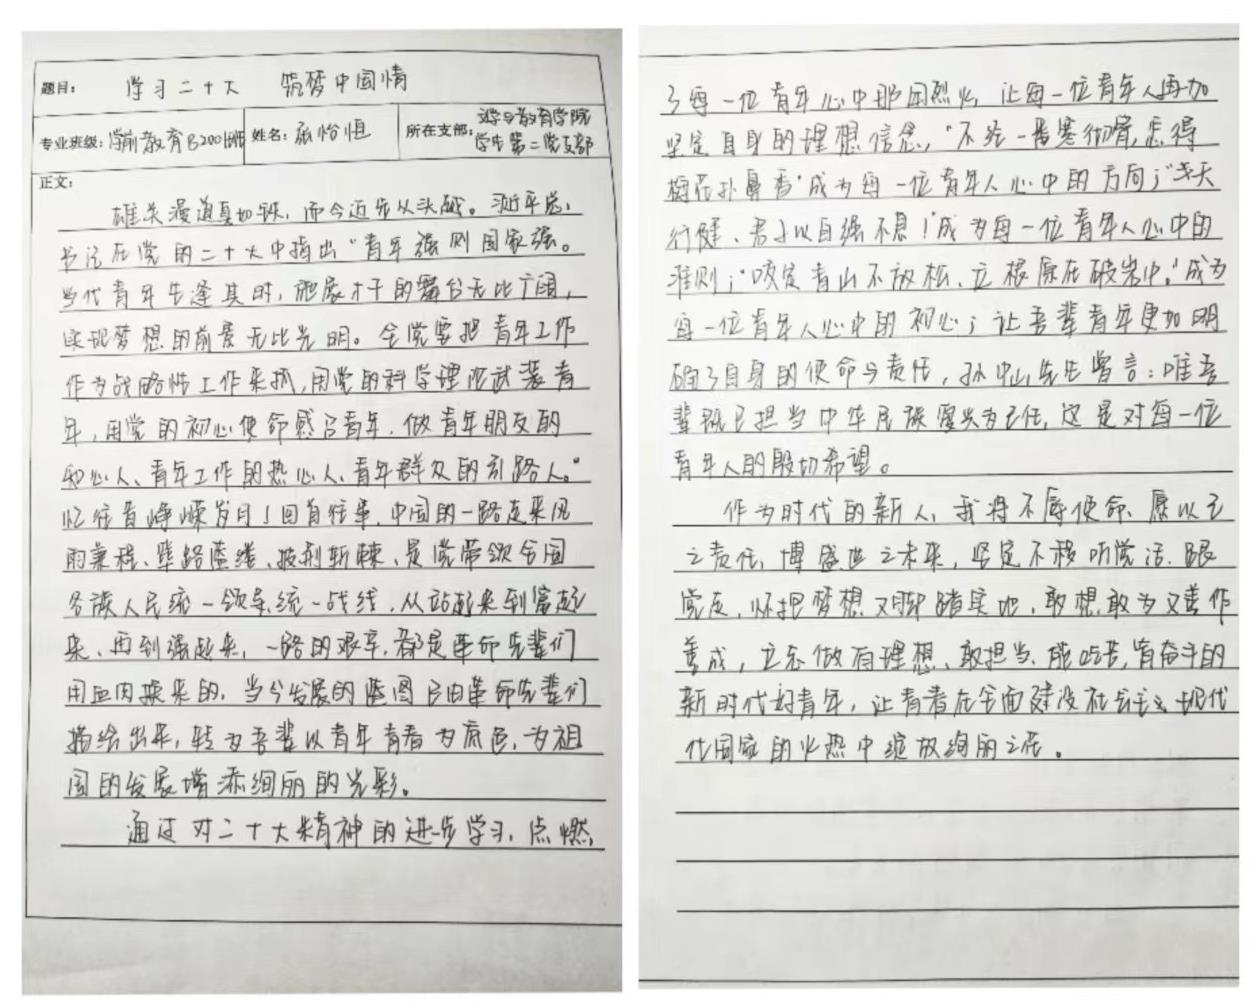 题目： 学习二十大 筑梦中国情
专业班级：学前教育B2001班 姓名：张怡恒 所在支部：文学与教育学院
学生第二党支部
正文：
雄关漫道真如铁，而今迈步从头越。习近平总
书记在党的二十大中指出“青年强则国家强。
当代青年生逢其时，施展才干的舞台无比广阔，
实现梦想的前景无比光明。全党要把青年工作
作为战略性工作来抓，用党的科学理论武装青
年，用党的初心使命感召青年，做青年朋友的
知心人、青年工作的热心人、青年群众的引路人。”
忆往昔峥嵘岁月！回首往事，中国的一路走来风
雨兼程、筚路蓝缕、披荆斩棘、是党带领全国
各族人民统一领导，统一战线，从站起来到富起
来、再到强起来，一路的艰辛，都是革命先辈们
用血肉换来的，当今发展的蓝图已由革命先辈们
描绘出来，转为吾辈以青年青春为底色，为祖
国的发展增添绚丽的光彩。
通过对二十大精神的进一步学习，点燃
了每一位青年心中那团烈火，让每一位青年人再加
坚定自身的理想信念，“不经一番寒彻骨，怎得
梅花扑鼻香”成为每一位青年人心中的方向；“天
行健、君子以自强不息！”成为每一位青年人心中的
准则；“咬定青山不放松、立根原在破岩中。”成为
每一位青年人心中的初心；让吾辈青年更加明
确了自身的使命与责任，孙中山先生曾言：唯吾
辈既已担当中华民族复兴为己任，这是对每一位
青年人的殷切希望。
作为时代的新人，我将不辱使命、愿以
之责任，博盛世之未来，坚定不移听党话、跟
党走，怀抱梦想又脚踏实地，敢想敢为又善作
善成，立志做有理想、敢担当、能吃苦、肯奋斗的
新时代好青年，让青春在全面建设社会主义现代
代国家的火热中绽放绚丽之花。